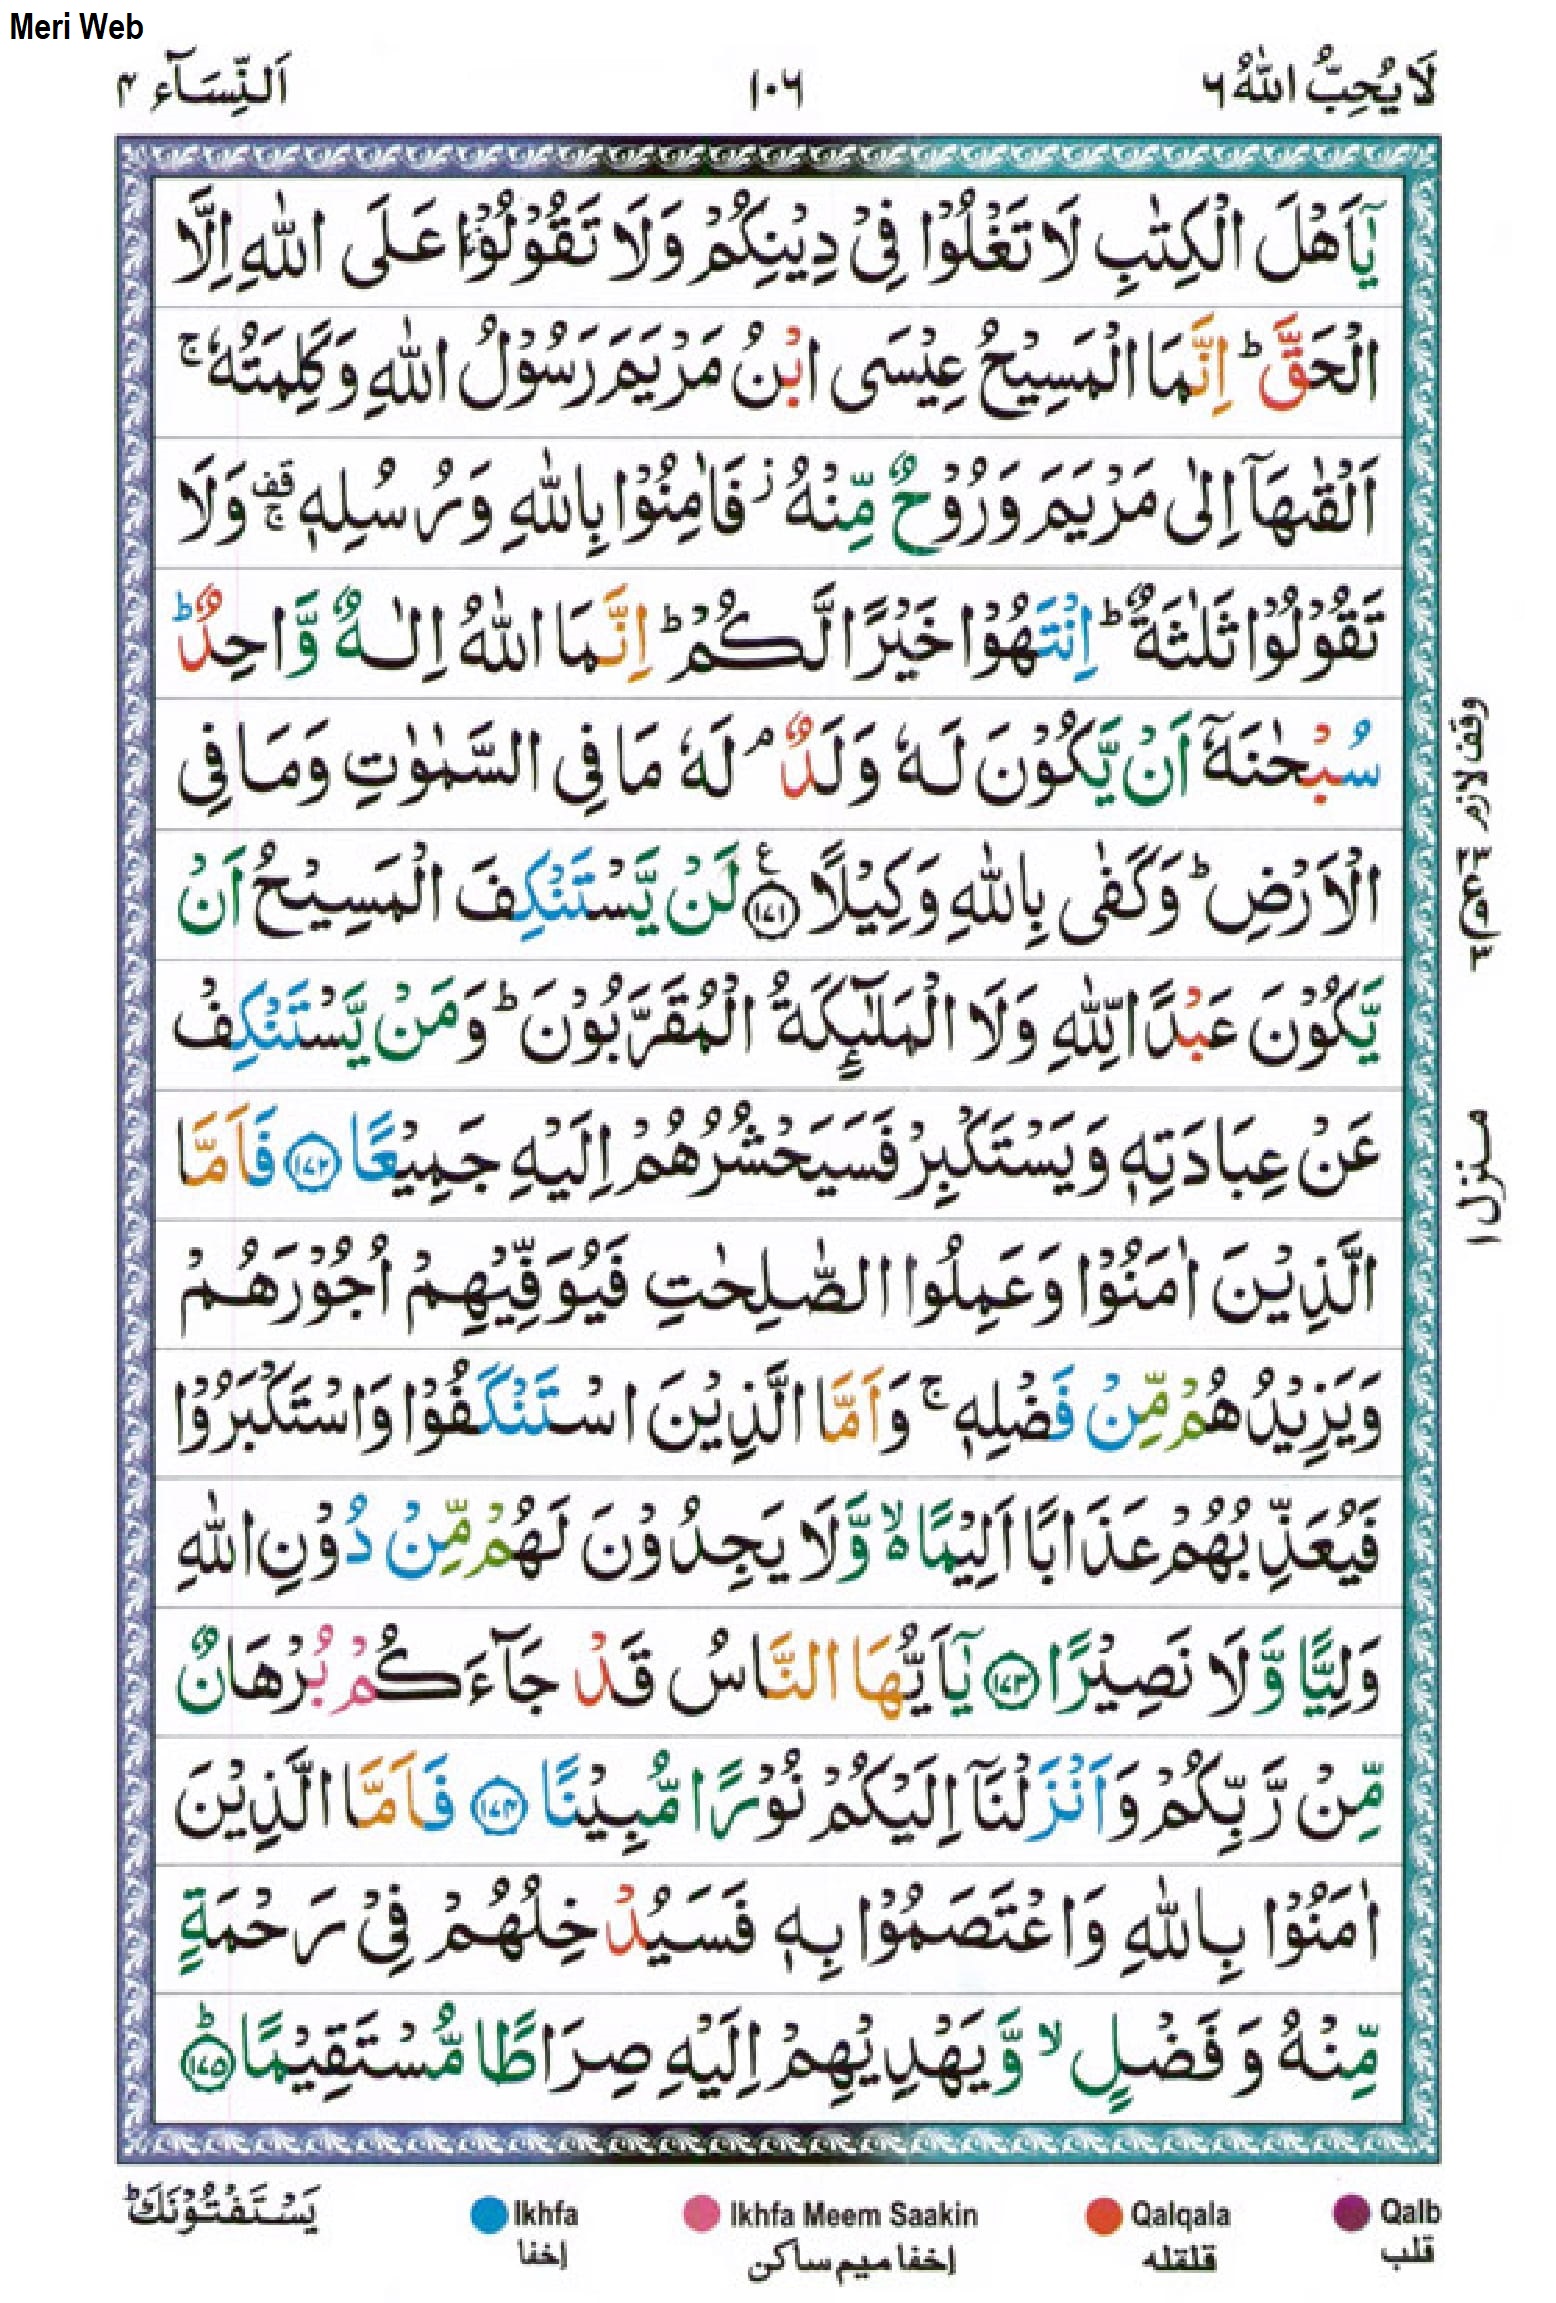 Meri Web
لَا يُحِبُّ اللّٰهُ ٦
١٠٦
اَلنِّسَآء ٤
يٰٓاَهْلَ الْكِتٰبِ لَا تَغْلُوْا فِيْ دِيْنِكُمْ وَلَا تَقُوْلُوْا عَلَى اللّٰهِ اِلَّا
الْحَقَّ ؕ اِنَّمَا الْمَسِيْحُ عِيْسَى ابْنُ مَرْيَمَ رَسُوْلُ اللّٰهِ وَكَلِمَتُهٗ ۚ
اَلْقٰىهَاۤ اِلٰى مَرْيَمَ وَرُوْحٌ مِّنْهُ ؗ فَاٰمِنُوْا بِاللّٰهِ وَرُسُلِهٖ ۚ قف وَلَا
تَقُوْلُوْا ثَلٰثَةٌ ؕ اِنْتَهُوْا خَيْرًا لَّكُمْ ؕ اِنَّمَا اللّٰهُ اِلٰهٌ وَّاحِدٌ ؕ
سُبْحٰنَهٗۤ اَنْ يَّكُوْنَ لَهٗ وَلَدٌ ۘ لَهٗ مَا فِي السَّمٰوٰتِ وَمَا فِي
الْاَرْضِ ؕ وَكَفٰى بِاللّٰهِ وَكِيْلًا ١٧١ ع لَنْ يَّسْتَنْكِفَ الْمَسِيْحُ اَنْ
يَّكُوْنَ عَبْدًا لِّلّٰهِ وَلَا الْمَلٰٓئِكَةُ الْمُقَرَّبُوْنَ ؕ وَمَنْ يَّسْتَنْكِفْ
عَنْ عِبَادَتِهٖ وَيَسْتَكْبِرْ فَسَيَحْشُرُهُمْ اِلَيْهِ جَمِيْعًا ١٧٢ فَاَمَّا
الَّذِيْنَ اٰمَنُوْا وَعَمِلُوا الصّٰلِحٰتِ فَيُوَفِّيْهِمْ اُجُوْرَهُمْ
وَيَزِيْدُهُمْ مِّنْ فَضْلِهٖ ۚ وَاَمَّا الَّذِيْنَ اسْتَنْكَفُوْا وَاسْتَكْبَرُوْا
فَيُعَذِّبُهُمْ عَذَابًا اَلِيْمًا ۙ٥ وَّلَا يَجِدُوْنَ لَهُمْ مِّنْ دُوْنِ اللّٰهِ
وَلِيًّا وَّلَا نَصِيْرًا ١٧٣ يٰٓاَيُّهَا النَّاسُ قَدْ جَآءَكُمْ بُرْهَانٌ
مِّنْ رَّبِّكُمْ وَاَنْزَلْنَاۤ اِلَيْكُمْ نُوْرًا مُّبِيْنًا ١٧٤ فَاَمَّا الَّذِيْنَ
اٰمَنُوْا بِاللّٰهِ وَاعْتَصَمُوْا بِهٖ فَسَيُدْخِلُهُمْ فِيْ رَحْمَةٍ
مِّنْهُ وَفَضْلٍ ۙ وَّيَهْدِيْهِمْ اِلَيْهِ صِرَاطًا مُّسْتَقِيْمًا ؕ ١٧٥
وقف لازم
منزل ١
يَسْتَفْتُوْنَكَ ؕ
Ikhfa
إخفا
Ikhfa Meem Saakin
إخفا ميم ساكن
Qalqala
قلقله
Qalb
قلب